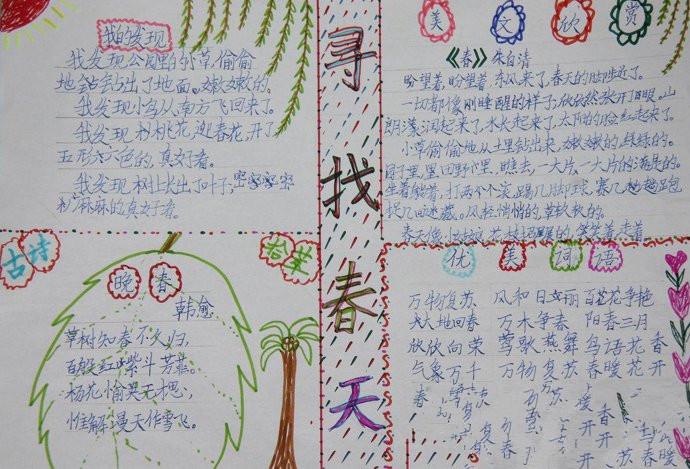 寻找春天
我的发现
我发现公园里的小草,偷偷
地会钻出了地面。嫩嫩的。
我发现小鸟从南方飞回来了。
我发现桃花,迎春花,开了,
五彩六色的,真好看。
我发现树上长出了叶子,密密密密
麻麻的真好看。
美文欣赏
《春》朱自清
盼望着,盼望着,东风来了,春天的脚步近了。
一切都像刚睡醒的样子,欣欣然张开了眼。山
朗润起来了,水长起来了,太阳的脸红起来了。
小草偷偷地从土里钻出来,嫩嫩的,绿绿的。
园子里,田野里,瞧去,一大片一大片的满是的。
坐着,躺着,打两个滚,踢几脚球,赛几趟跑
捉几回迷藏。风轻悄悄的,草软软的。
春天像小姑娘,花枝招展的,笑着,走着
古诗
拾萃
晚春
韩愈
草树知春不久归,
百般红紫斗芳菲。
杨花愉荚无思,
惟解漫天作雪飞。
优美词语
万物复苏 风和日丽 百花争艳
大地回春 万木争春 阳春三月
欣欣向荣 莺歌燕舞 鸟语花香
气象万千 万物复苏 春暖花开